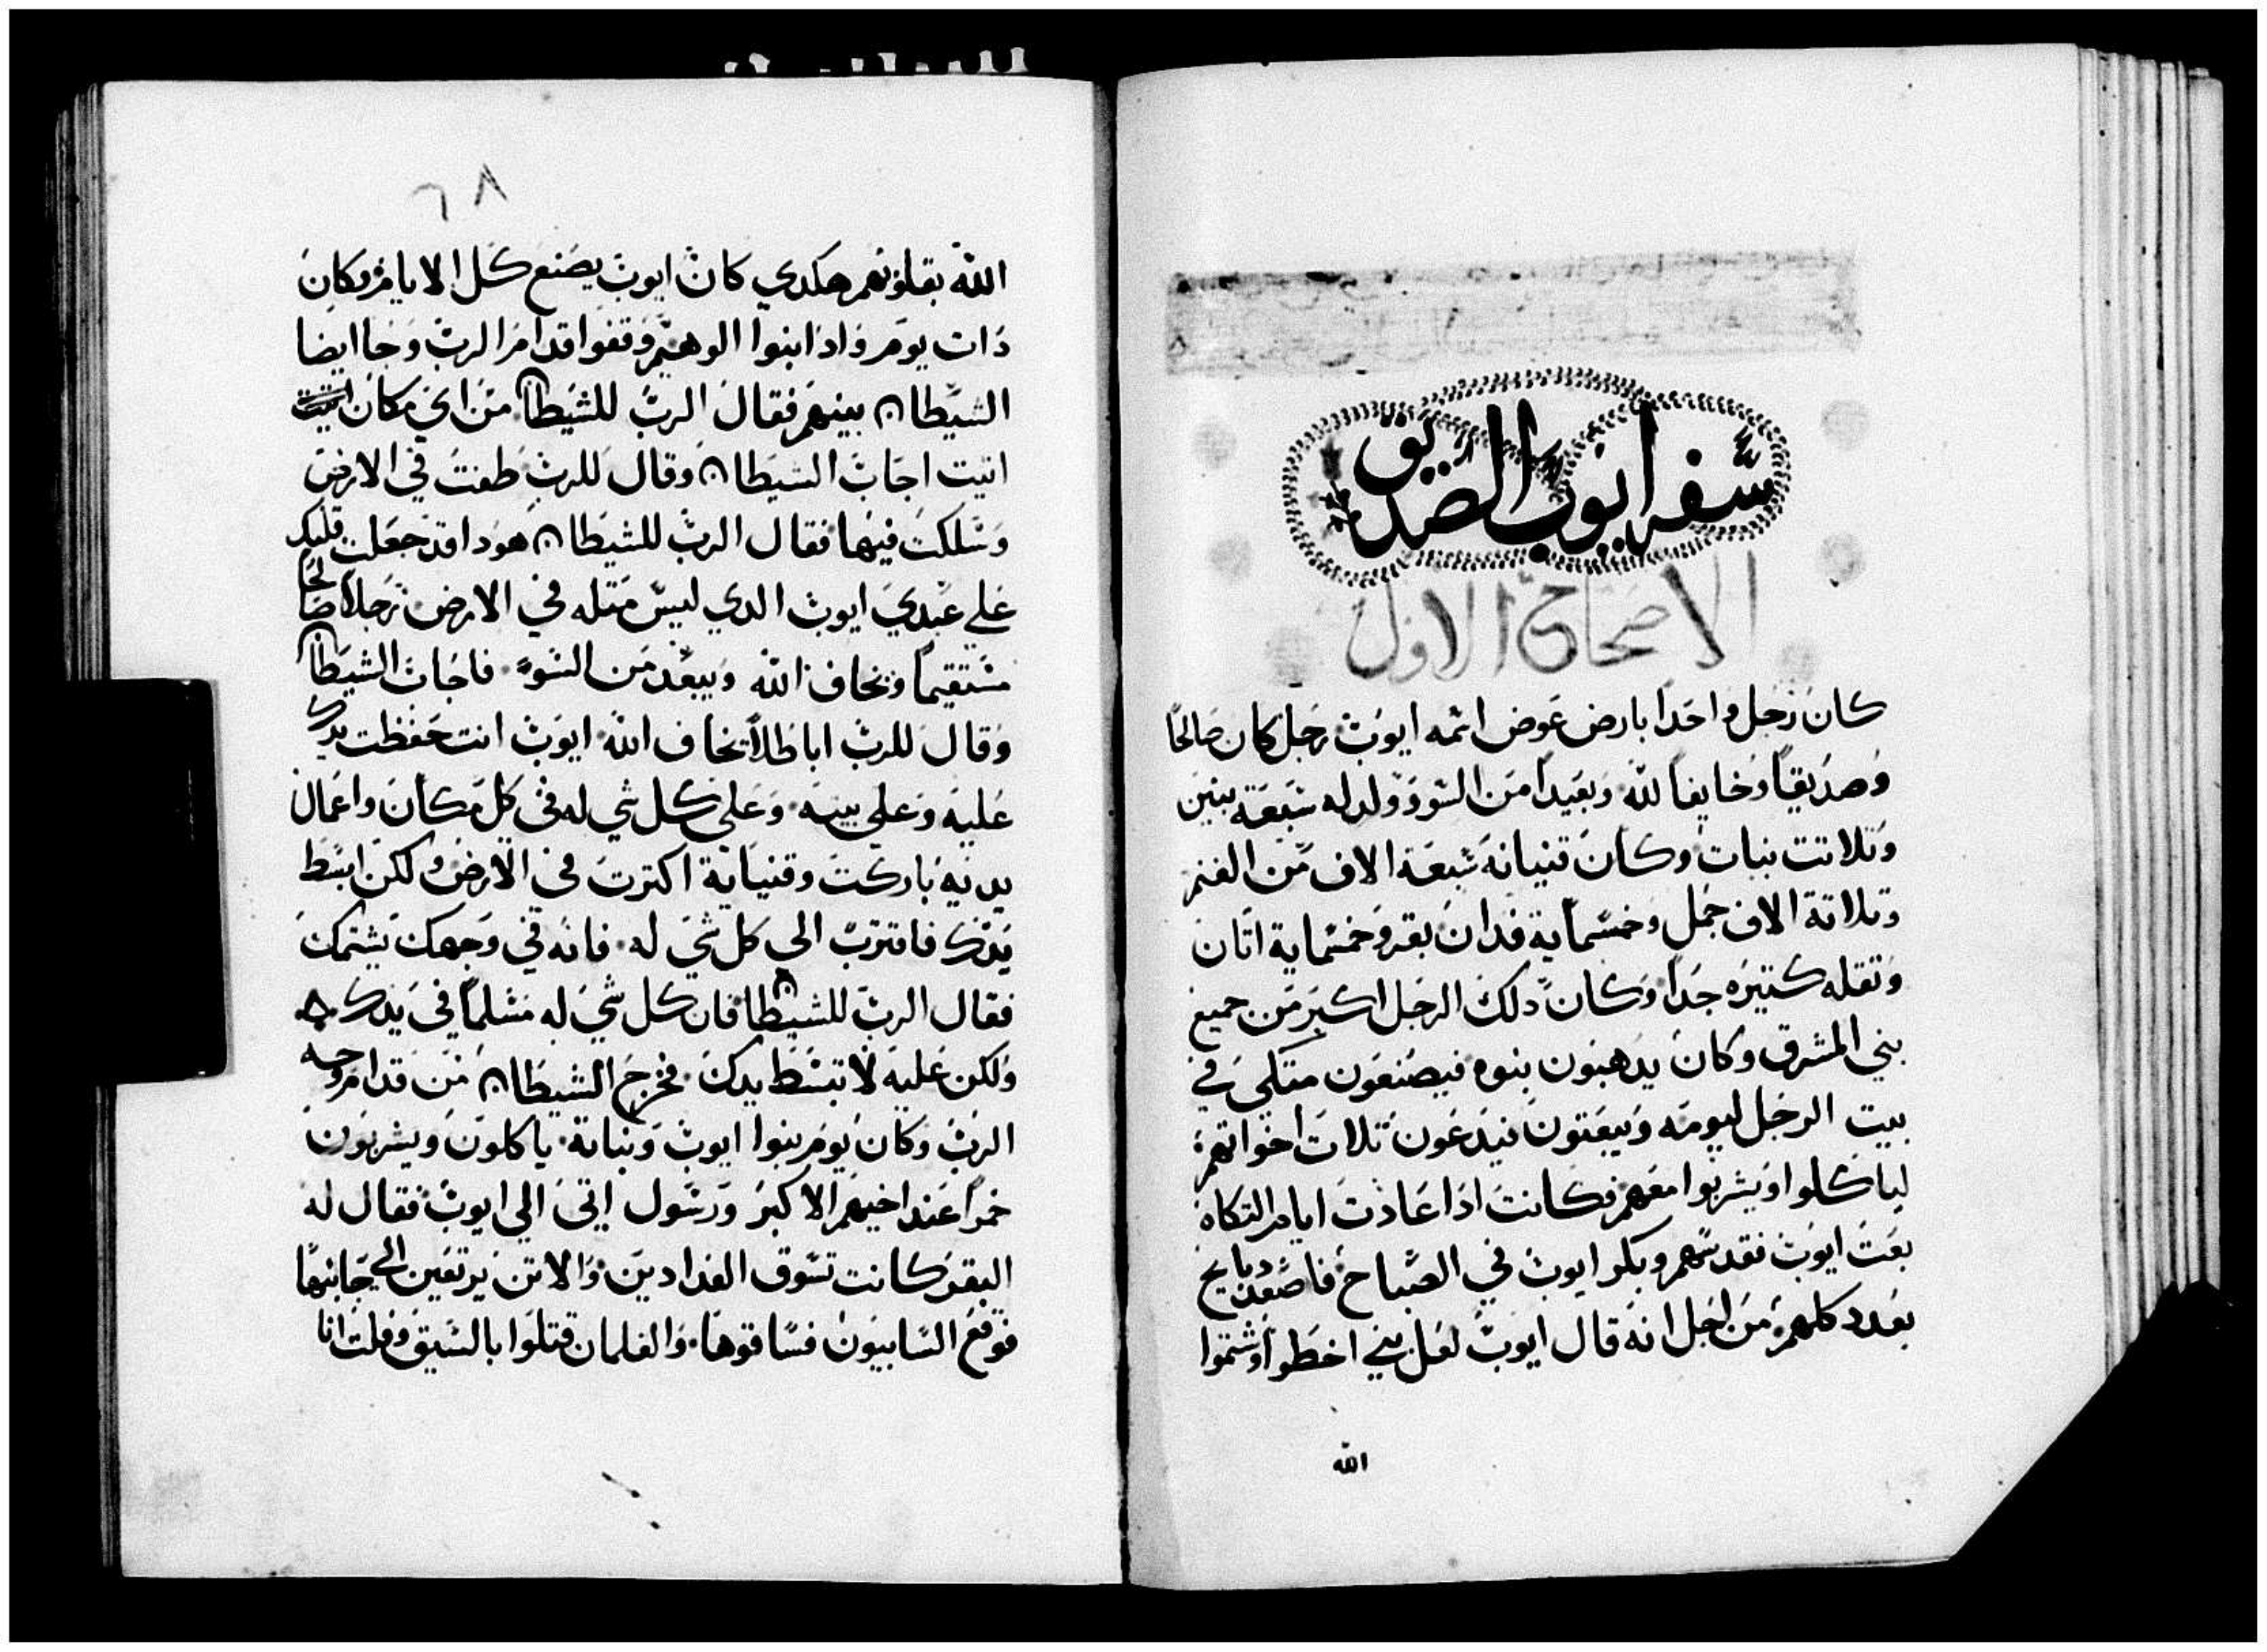 سفر ايوب الصديق
الاصحاح الاول
كان رجل واحدا بارض عوض اسمه ايوب رجل كان صالحا
وصديقا وخايفا لله وبعيدا من السوو وولد له سبعة بنين
وتلاتت بنات وكان قنيانه سبعة الاف من الغنم
وتلاتة الاف جمل وخمسماية فدان بقر وخمسماية اتان
وتقله كتيره جدا وكان دلك الرجل اكبر من جميع
بني المشرق وكان يدهبون بنوه فيصنعون متكي في
بيت الرجل ليومه ويبعتون فيدعون تلات اخواتهم
لياكلوا ويشربوا معهم فكانت ادا عادت ايام التكاه
بعت ايوب فقدسهم وبكر ايوب في الصباح فاصعد دبايح
بعدد كلهم من اجل انه قال ايوب لعل بني اخطوا وشتموا
الله
٦٨
الله بقلوبهم هكدي كان ايوب يصنع كل الايام وكان
دات يوم وادا بنوا الوهيم وقفوا قدام الرب وجا ايضا
الشيطان بينهم فقال الرب للشيطان من اي مكان
اتيت اجاب الشيطان وقال للرب طفت في الارض
وسلكت فيها فقال الرب للشيطان هودا قد جعلت قلبك
علي عبدي ايوب الدي ليس متله في الارض رجلا صالحا
مستقيما ويخاف الله ويبعد من السوء فاجاب الشيطان
وقال للرب اباطلا يخاف الله ايوب انت حفظت بيدك
عليه وعلي بيته وعلي كل شي له في كل مكان واعمال
يديه باركت وقنيانه اكترت في الارض ولكن ابسط
يدك فاقترب الي كل شي له فانه في وجهك يشتمك
فقال الرب للشيطان فان كل شي له مسلما في يدك
ولكن عليه لا تبسط يدك فخرج الشيطان من قدام وجه
الرب وكان يوم بنوا ايوب وبناته ياكلون ويشربون
خمرا عند اخيهم الاكبر ورسول اتي الي ايوب فقال له
البقر كانت تسوق الفدادين والاتن يرتعين الي جانبها
فوقع السابيون فساقوها والغلمان قتلوا بالسيق وفلت انا